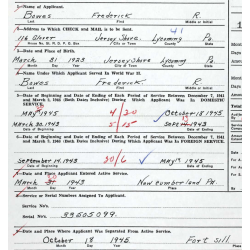 1. Name of Applicant.
Bowes Frederick R
Last First Middle or Initial
2. Address to Which CHECK and MAIL is to be Sent.
41
116 Oliver Jersey Shore, Lycoming Pa
House No. St. R. D. P. O. Box City or Town County State
3. Date and Place of Birth.
March 31 1923 Jersey Shore Lycoming Pa
Month Day Year City or Town County State
4. Name Under Which Applicant Served In World War II.
Bowes Frederick R.
Last First Middle or Initial
5. Date of Beginning and Date of Ending of Each Period of Service Between December 7, 1941
and March 2, 1946 (Both Dates Inclusive) During Which Applicant Was In DOMESTIC
SERVICE.
May 1945 4/20 October 18 1945
March 30 1943 5/15 Sept 1943
6. Date of Beginning and Date of Ending of Each Period of Service Between December 7, 1941
and March 2, 1946 (Both Dates Inclusive) During Which Applicant Was In FOREIGN SERVICE.
September 14 1943 20/6 May 1945
7. Date and Place Applicant Entered Active Service.
March 1943 New Cumberland Pa.
8. Service or Serial Numbers Assigned to Applicant.
Service No.
Serial No. 33505099
9. Date and Place Where Applicant Was Separated From Active Service.
October 18 1945 Fort Sill